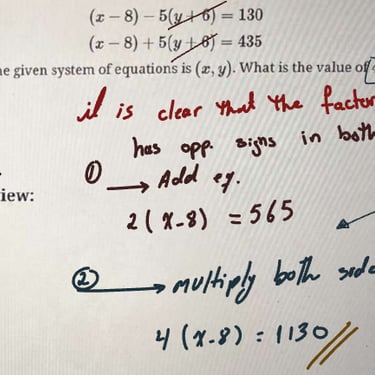 (x − 8) − 5(y + 6) = 130
(x − 8) + 5(y + 6) = 435
he given system of equations is (x, y). What is the value of
it is clear that the factor
has opp. signs in both
① → Add eq.
iew:
2(x-8) = 565
② → multiply both side
4(x-8) = 1130